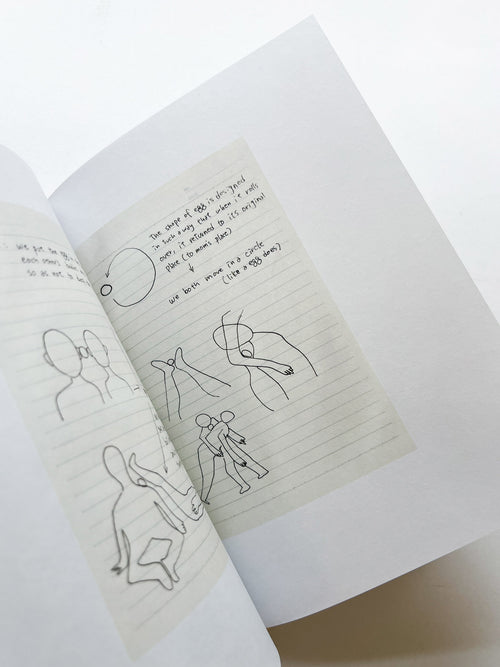 : We put the egg
each others
so as not to
The shape of egg is designed
in such a way that when it rolls
over, it returned to it's original
place (to mom's place)
↓
We both move in a circle
(like a egg does)